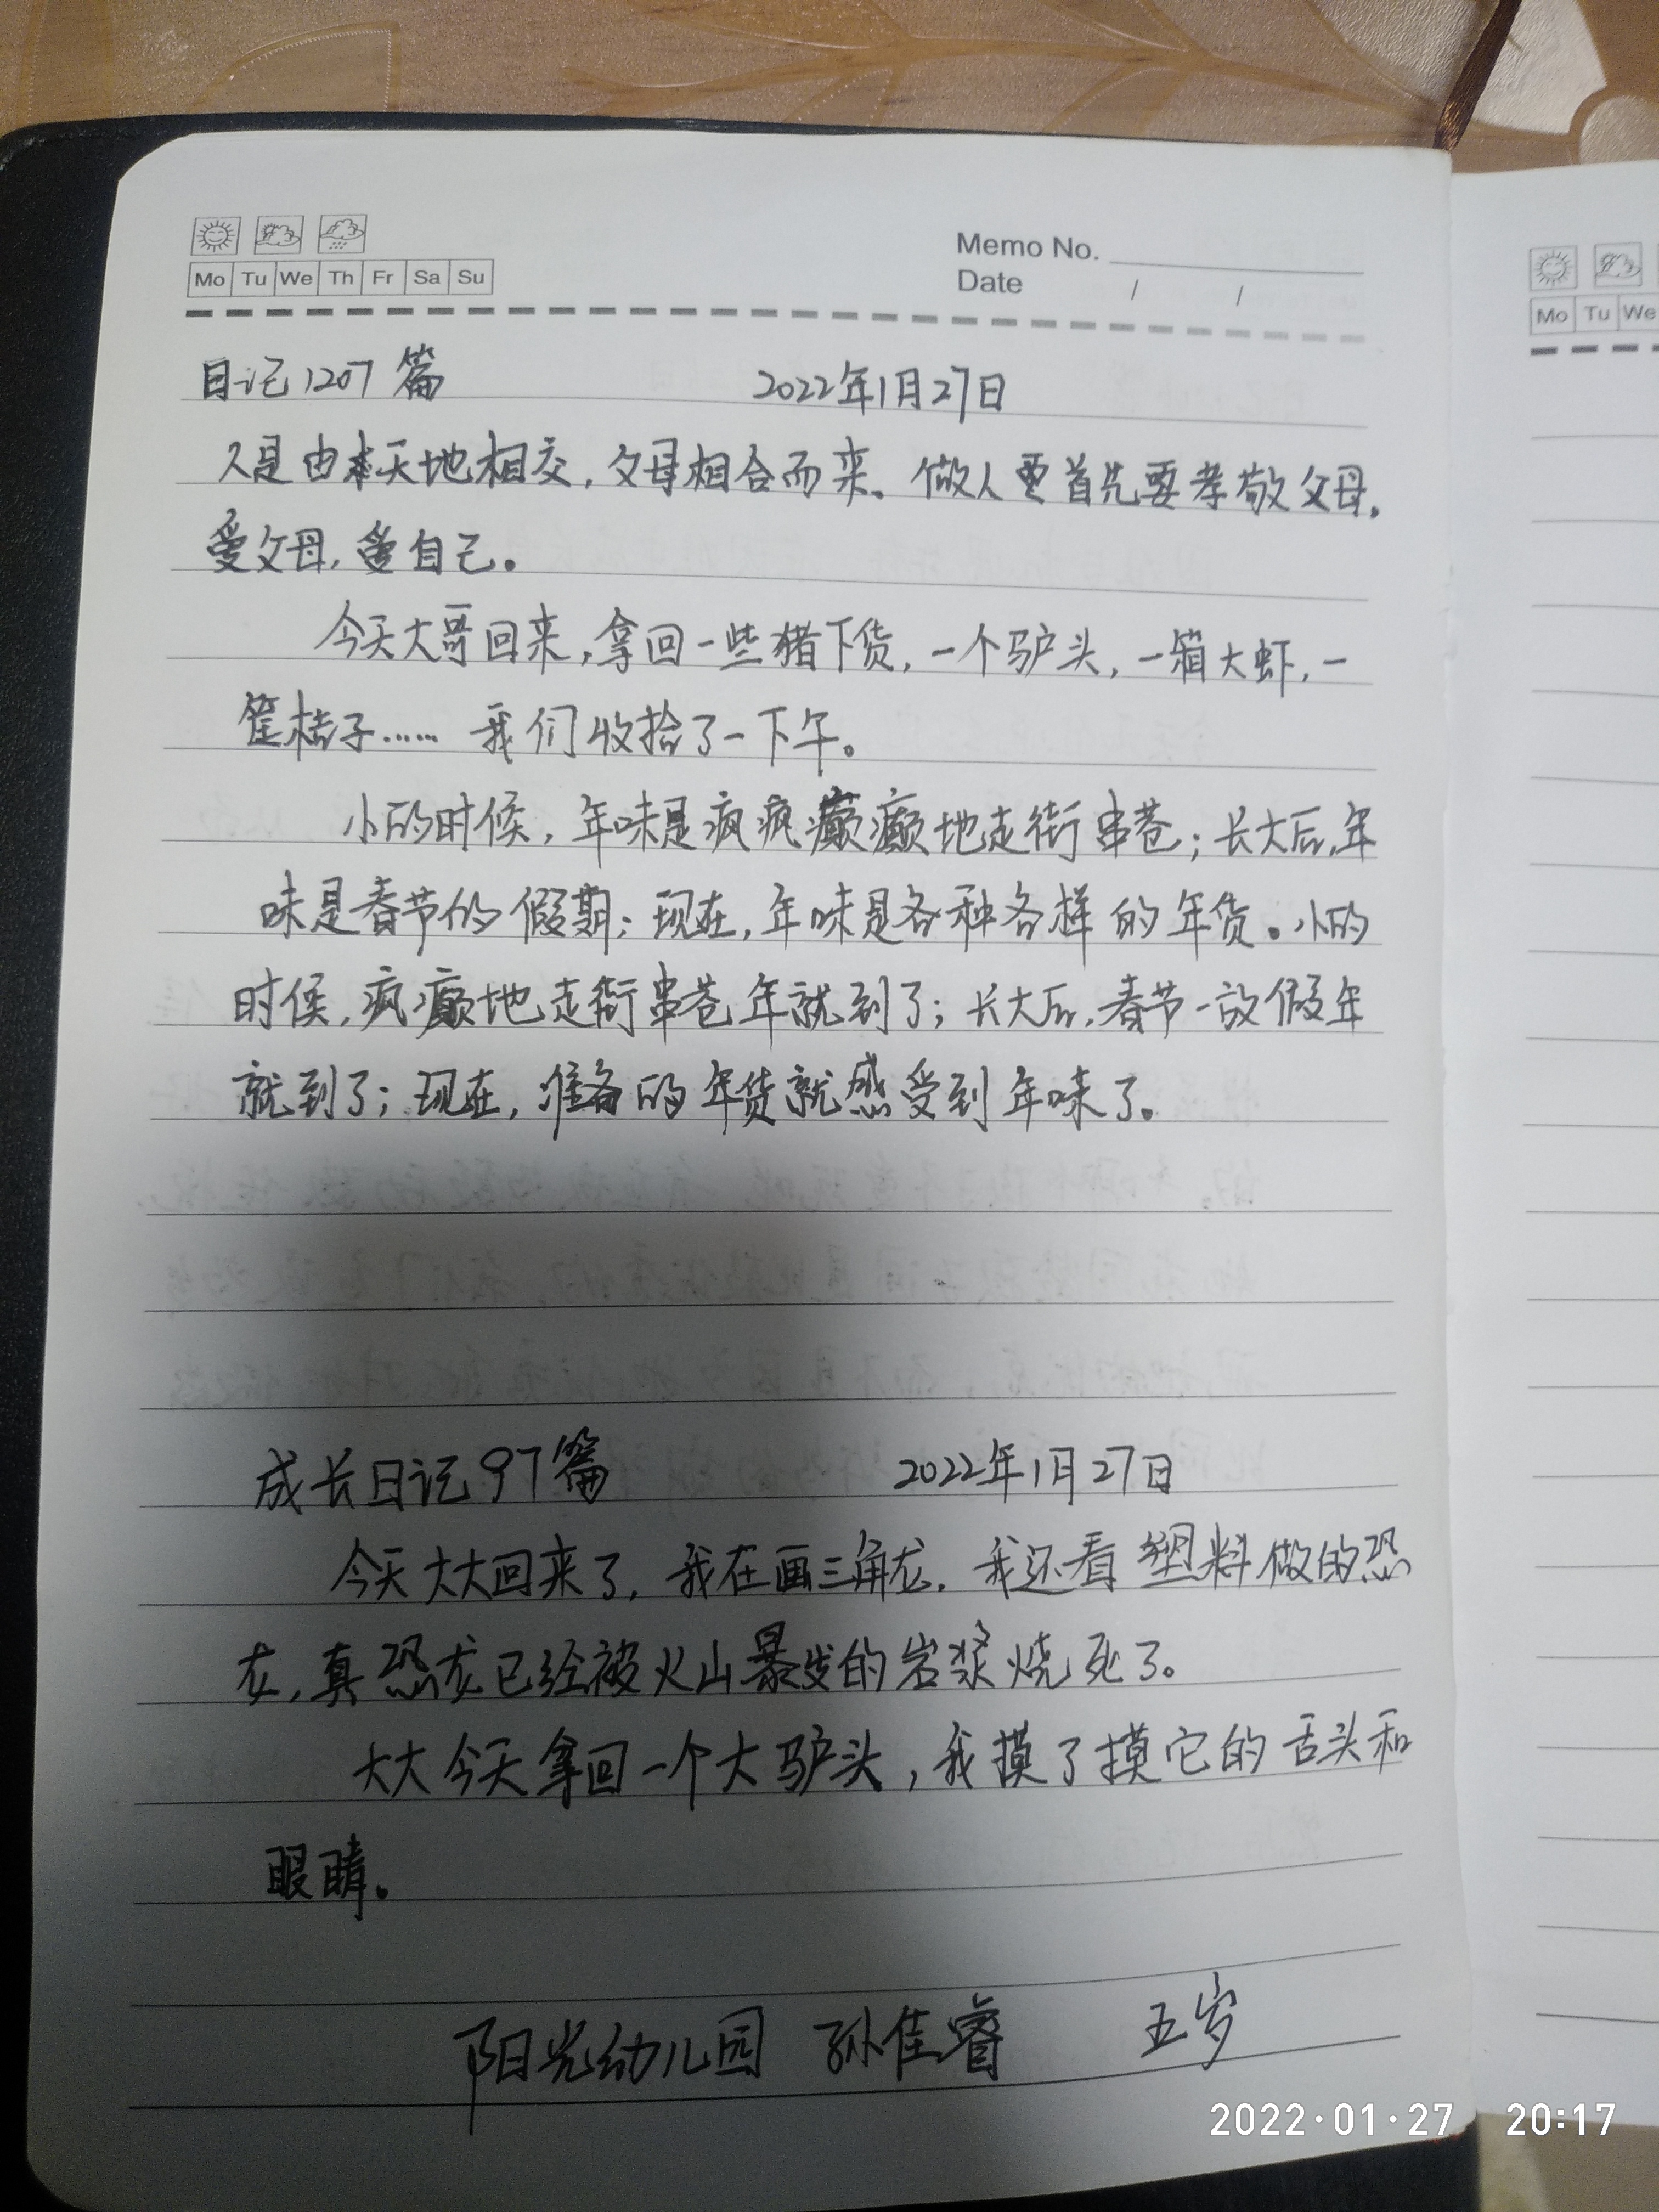 Memo No.
Mo Tu We Th Fr Sa Su
Date / /
Mo Tu We
日记1207篇 2022年1月27日
人是由天地相交,父母相合而来。做人要首先要孝敬父母,
爱父母,爱自己。
今天大哥回来,拿回一些猪下货,一个驴头,一箱大虾,一
筐桔子…… 我们收拾了一下午。
小的时候,年味是疯疯癫癫地走街串巷;长大后,年
味是春节的假期;现在,年味是各种各样的年货。小的
时候,疯癫地走街串巷年就到了;长大后,春节一放假年
就到了;现在,准备的年货就感受到年味了。
成长日记97篇 2022年1月27日
今天大大回来了,我在画三角龙。我还看塑料做的恐
龙,真恐龙已经被火山暴发的岩浆烧死了。
大大今天拿回一个大驴头,我摸了摸它的舌头和
眼睛。
阳光幼儿园 孙佳睿 五岁
2022·01·27 20:17